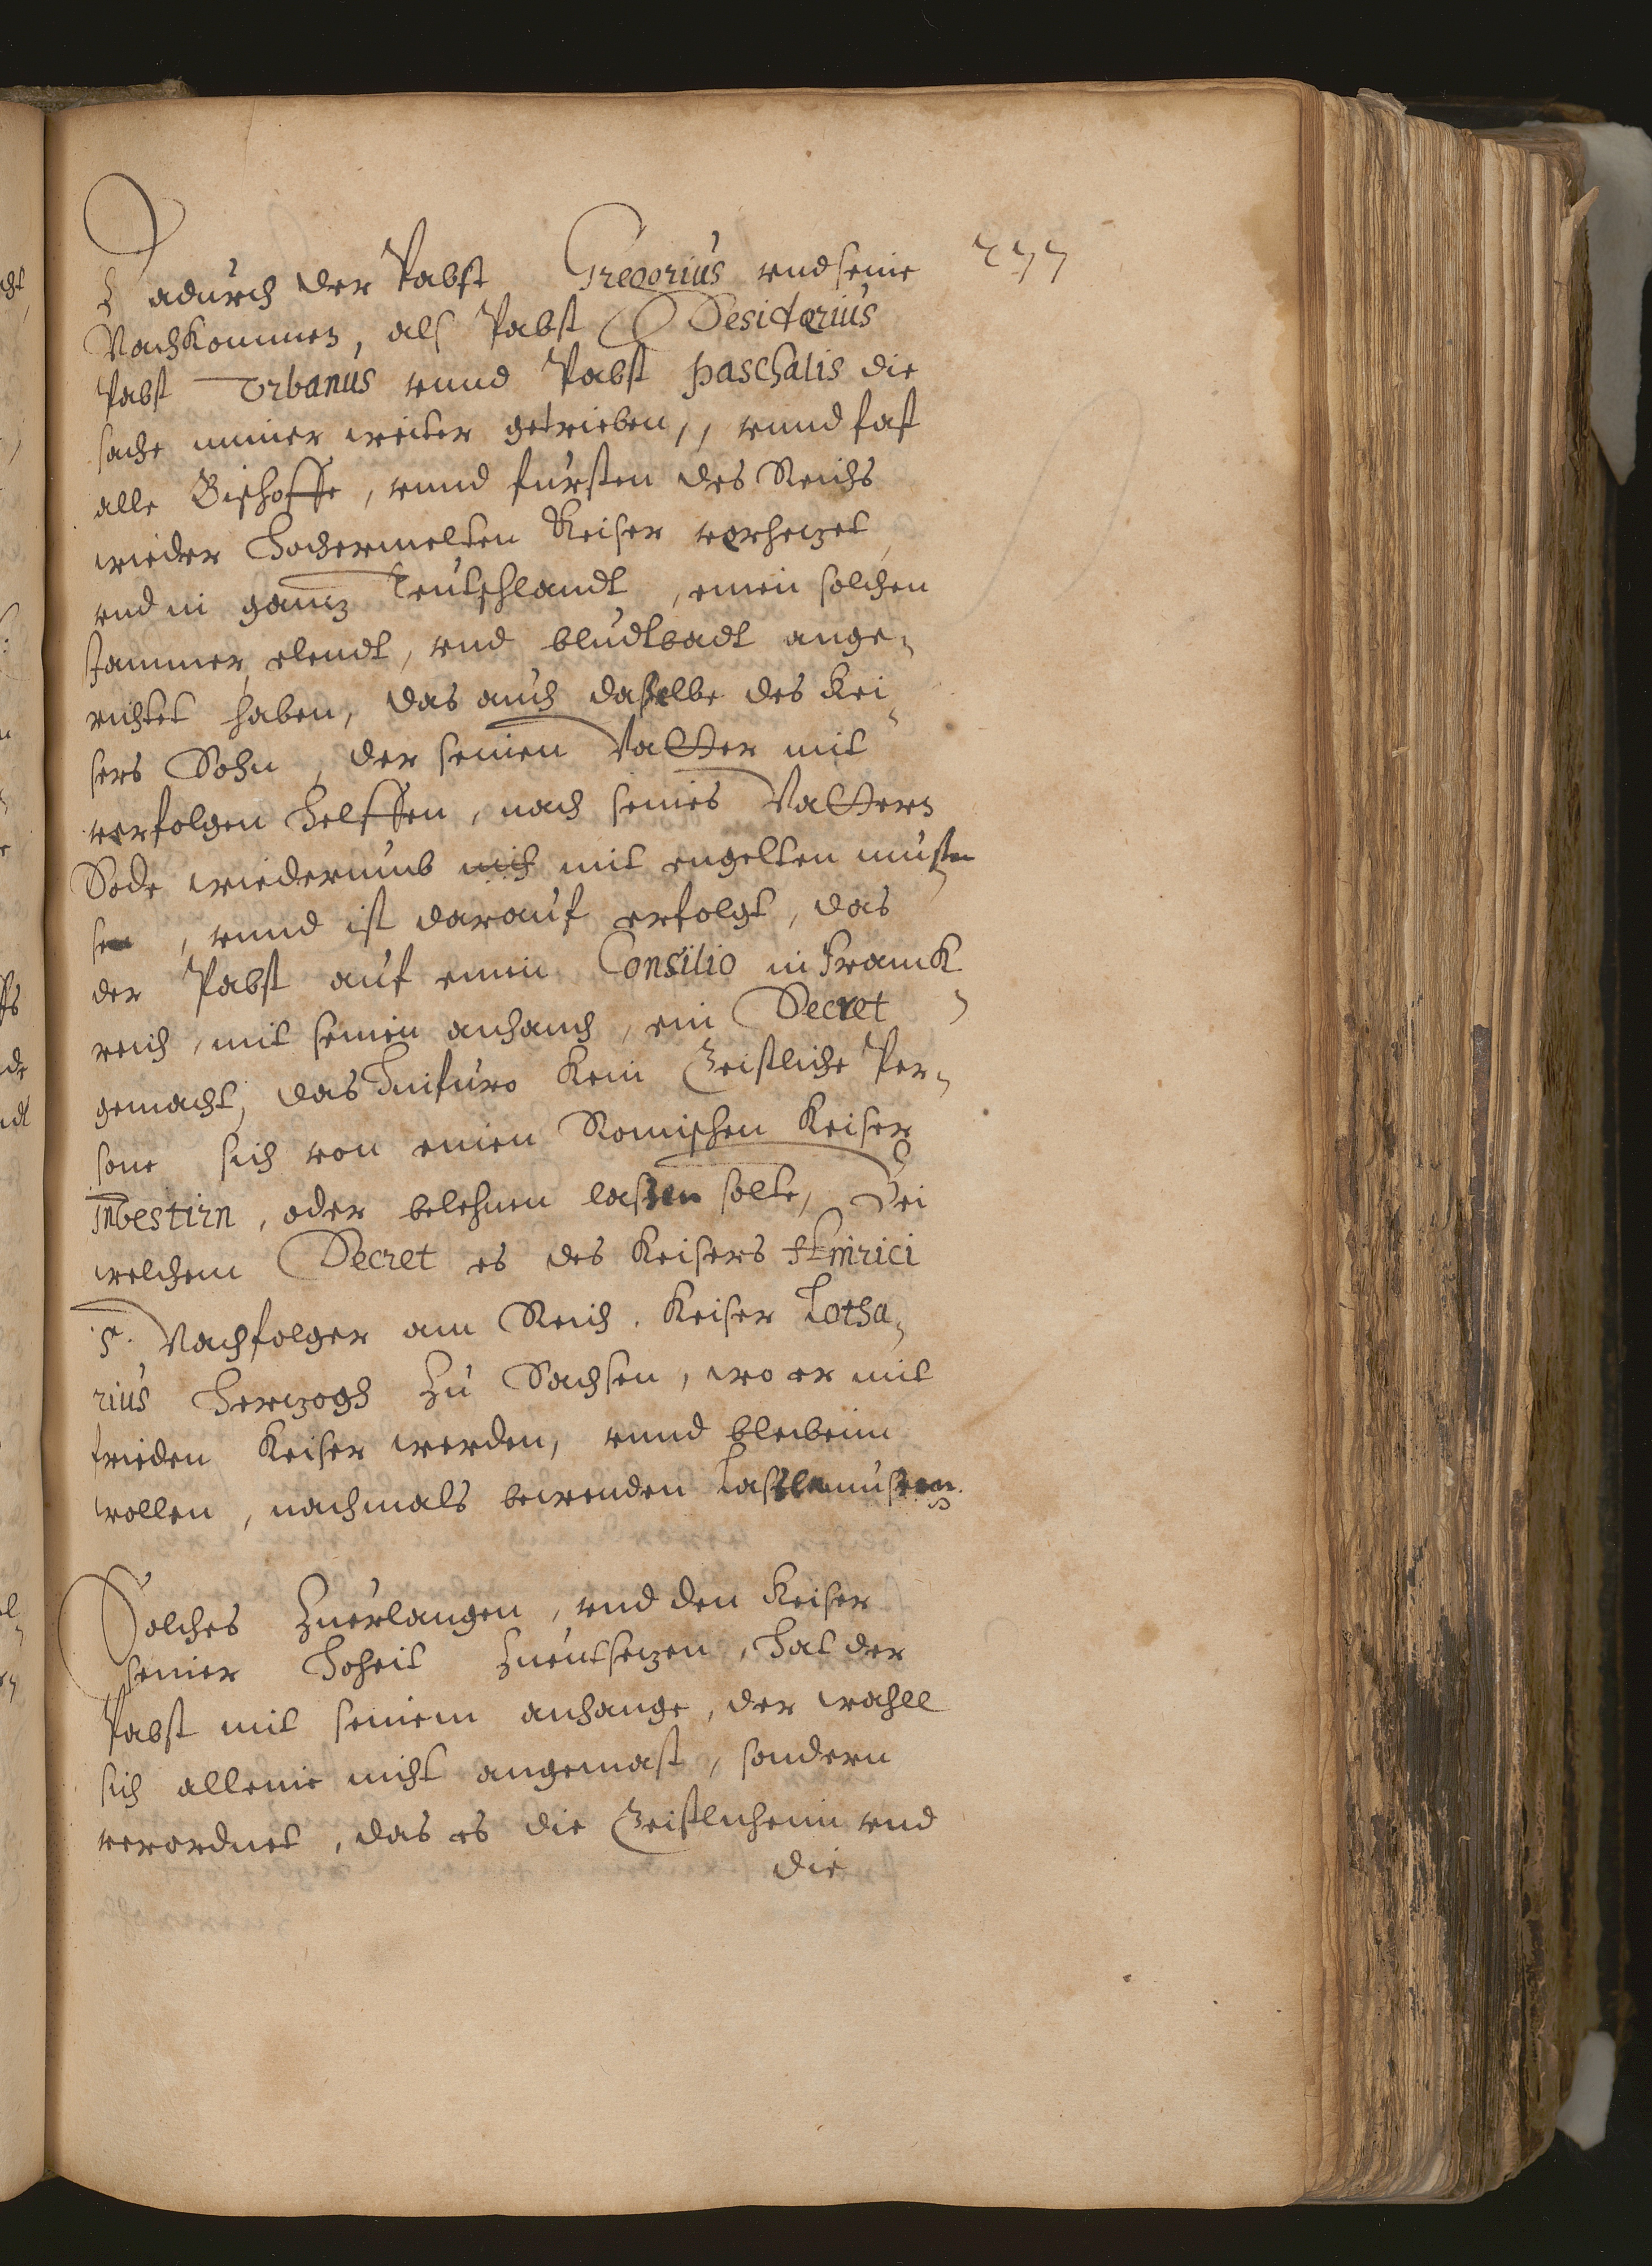 277
Dadurch der Pabst Gregorius vnd seine
Nachkommen, als Pabst Desiderius
Pabst Vrbanus vnnd Pabst Paschalis die
sache immer weiter getrieben, vnnd fast
alle Bischoffe, vnnd fursten des Reichs
wieder hochermelten Keiser verhetzet,
vnd in gantz Teutschlandt, einen solchen
Jammer, elendt, vnd bludtbadt ange-
richtet haben, das auch dasselbe des Kei-
sers Sohn, der seinen Vatter mit
verfolgen helffen, nach seines Vattern
Tode wiederumb mit engelten mus-
sen, vnnd ist darauf erfolgt, das
der Pabst auf einen Consilio in Franck-
reich, mit seinen anhang, ein Decret
gemacht, das Infuro kein Geistliche Per-
sone sich von einen Romischen Keiser
Investirn, oder belehnen lassen solte, Bei
welchem Decret es des Keisers Henrici
5. Nachfolger am Reich. Keiser Lotha-
rius Hertzogh Zu Sachsen, wo er mit
frieden Keiser werden, vnnd bleibenn
wollen, nachmals bewenden lassen mussen.
Solches Zuerlangen, vnd den Keiser
seiner Hoheit Zuentsetzen, hat der
Pabst mit seinem anhange, der wahll
sich alleine nicht angemast, sondern
verordnet, das es die Geistlichenn vnd
die